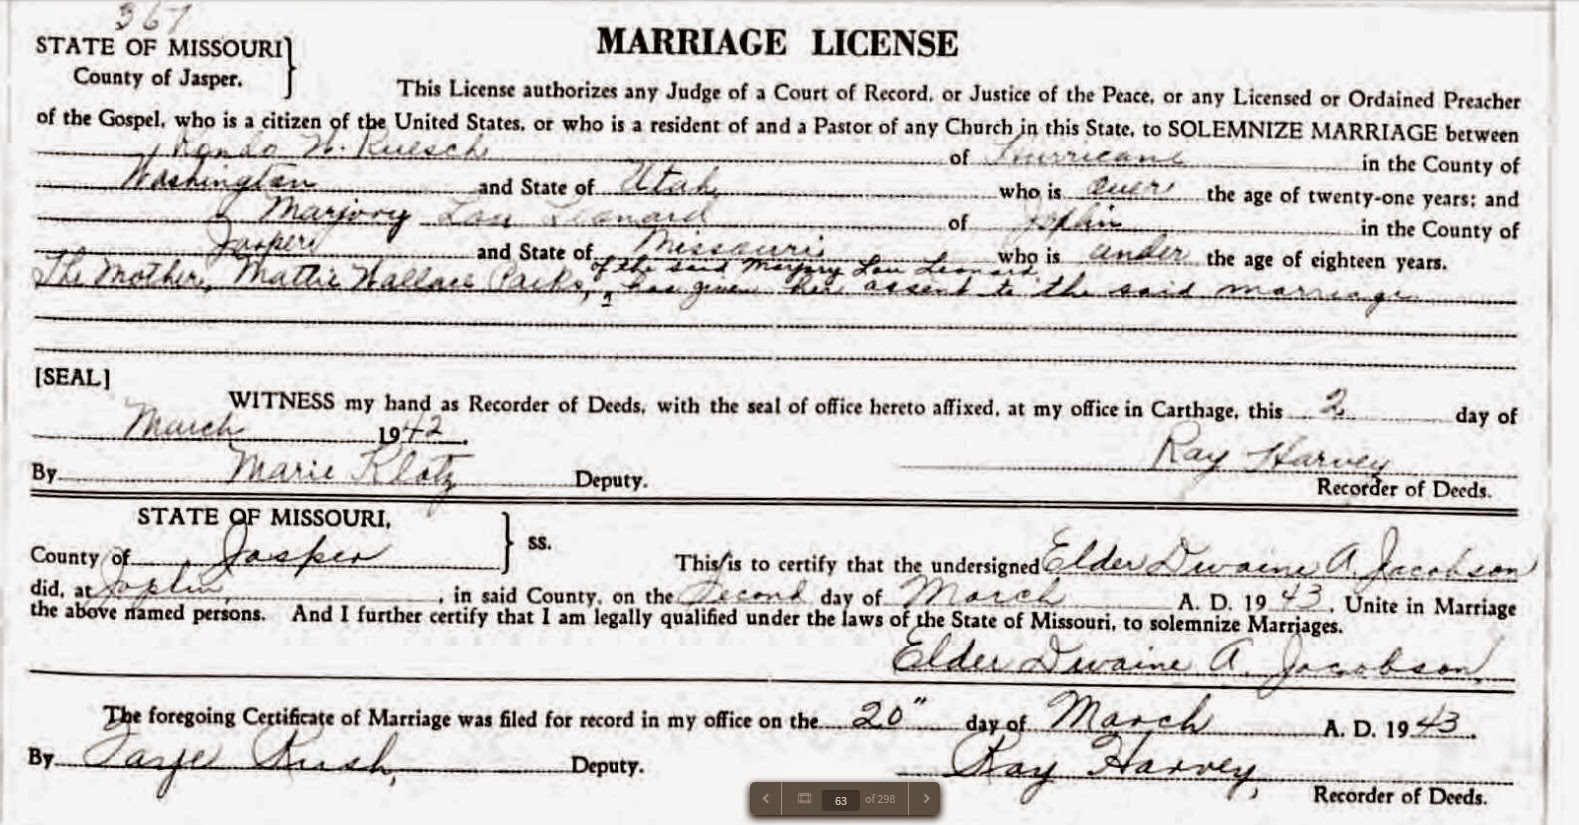 367
MARRIAGE LICENSE
STATE OF MISSOURI
County of Jasper.
This License authorizes any Judge of a Court of Record, or Justice of the Peace, or any Licensed or Ordained Preacher
of the Gospel, who is a citizen of the United States, or who is a resident of and a Pastor of any Church in this State, to SOLEMNIZE MARRIAGE between
W. Ruesch of Hurricane in the County of
Washington and State of Utah who is over the age of twenty-one years; and
Marjory Lou Leonard of Joplin in the County of
Jasper and State of Missouri who is under the age of eighteen years.
of the said Marjory Lou Leonard
The Mother, Mattie Wallace Parks, has given her assent to the said marriage
[SEAL]
WITNESS my hand as Recorder of Deeds, with the seal of office hereto affixed, at my office in Carthage, this 2 day of
March 1942.
Ray Harvey
By Marie Klotz Deputy.
Recorder of Deeds.
STATE OF MISSOURI,
County of Jasper ss.
This is to certify that the undersigned Elder Dwaine A. Jacobson
did, at Joplin, in said County, on the Second day of March A. D. 1943, Unite in Marriage
the above named persons. And I further certify that I am legally qualified under the laws of the State of Missouri, to solemnize Marriages.
Elder Dwaine A. Jacobson
The foregoing Certificate of Marriage was filed for record in my office on the 20" day of March A. D. 1943.
By Faye Rush, Deputy.
Ray Harvey,
Recorder of Deeds.
63 of 298